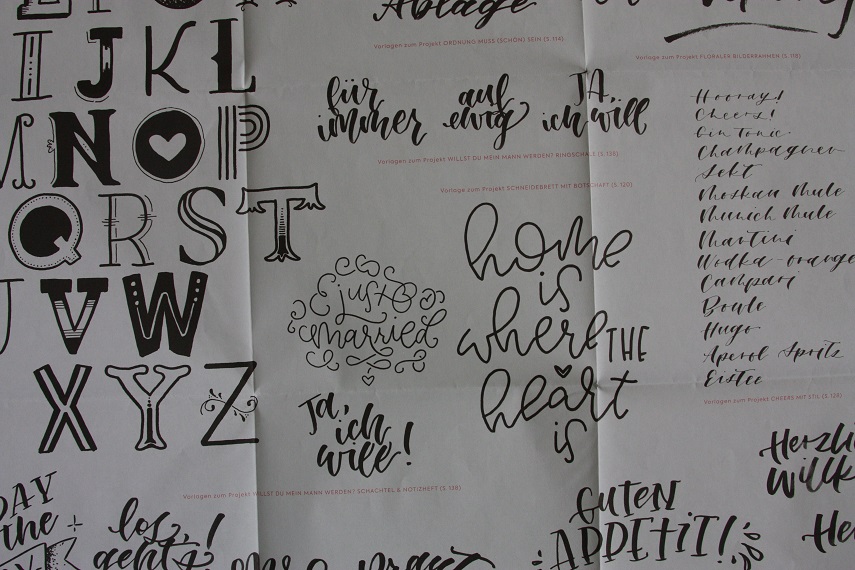 Ablage
Vorlagen zum Projekt ORDNUNG MUSS (SCHÖN) SEIN (S. 114)
Vorlage zum Projekt FLORALER BILDERRAHMEN (S. 118)
I J K L
N O P
Q R S T
V W
X Y Z
für
immer
auf
ewig
JA,
ich will
Vorlagen zum Projekt WILLST DU MEIN MANN WERDEN? RINGSCHALE (S. 135)
Vorlage zum Projekt SCHNEIDEBRETT MIT BOTSCHAFT (S. 120)
just
married
home
is
where THE
heart
is
Ja,
ich
will!
Vorlagen zum Projekt WILLST DU MEIN MANN WERDEN? SCHACHTEL & NOTIZHEFT (S. 138)
Hooray!
Cheers!
Gin Tonic
Champagner
Sekt
Moskau Mule
Munich Mule
Martini
Wodka-Orange
Campari
Bowle
Hugo
Aperol Spritz
Eistee
Vorlagen zum Projekt CHEERS MIT STIL (S. 125)
DAY
the
los
geht's!
GUTEN
APPETIT!